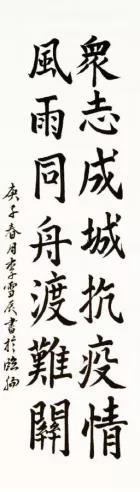 眾志成城抗疫情
風雨同舟渡難關
庚子春月李雪辰書於臨綸